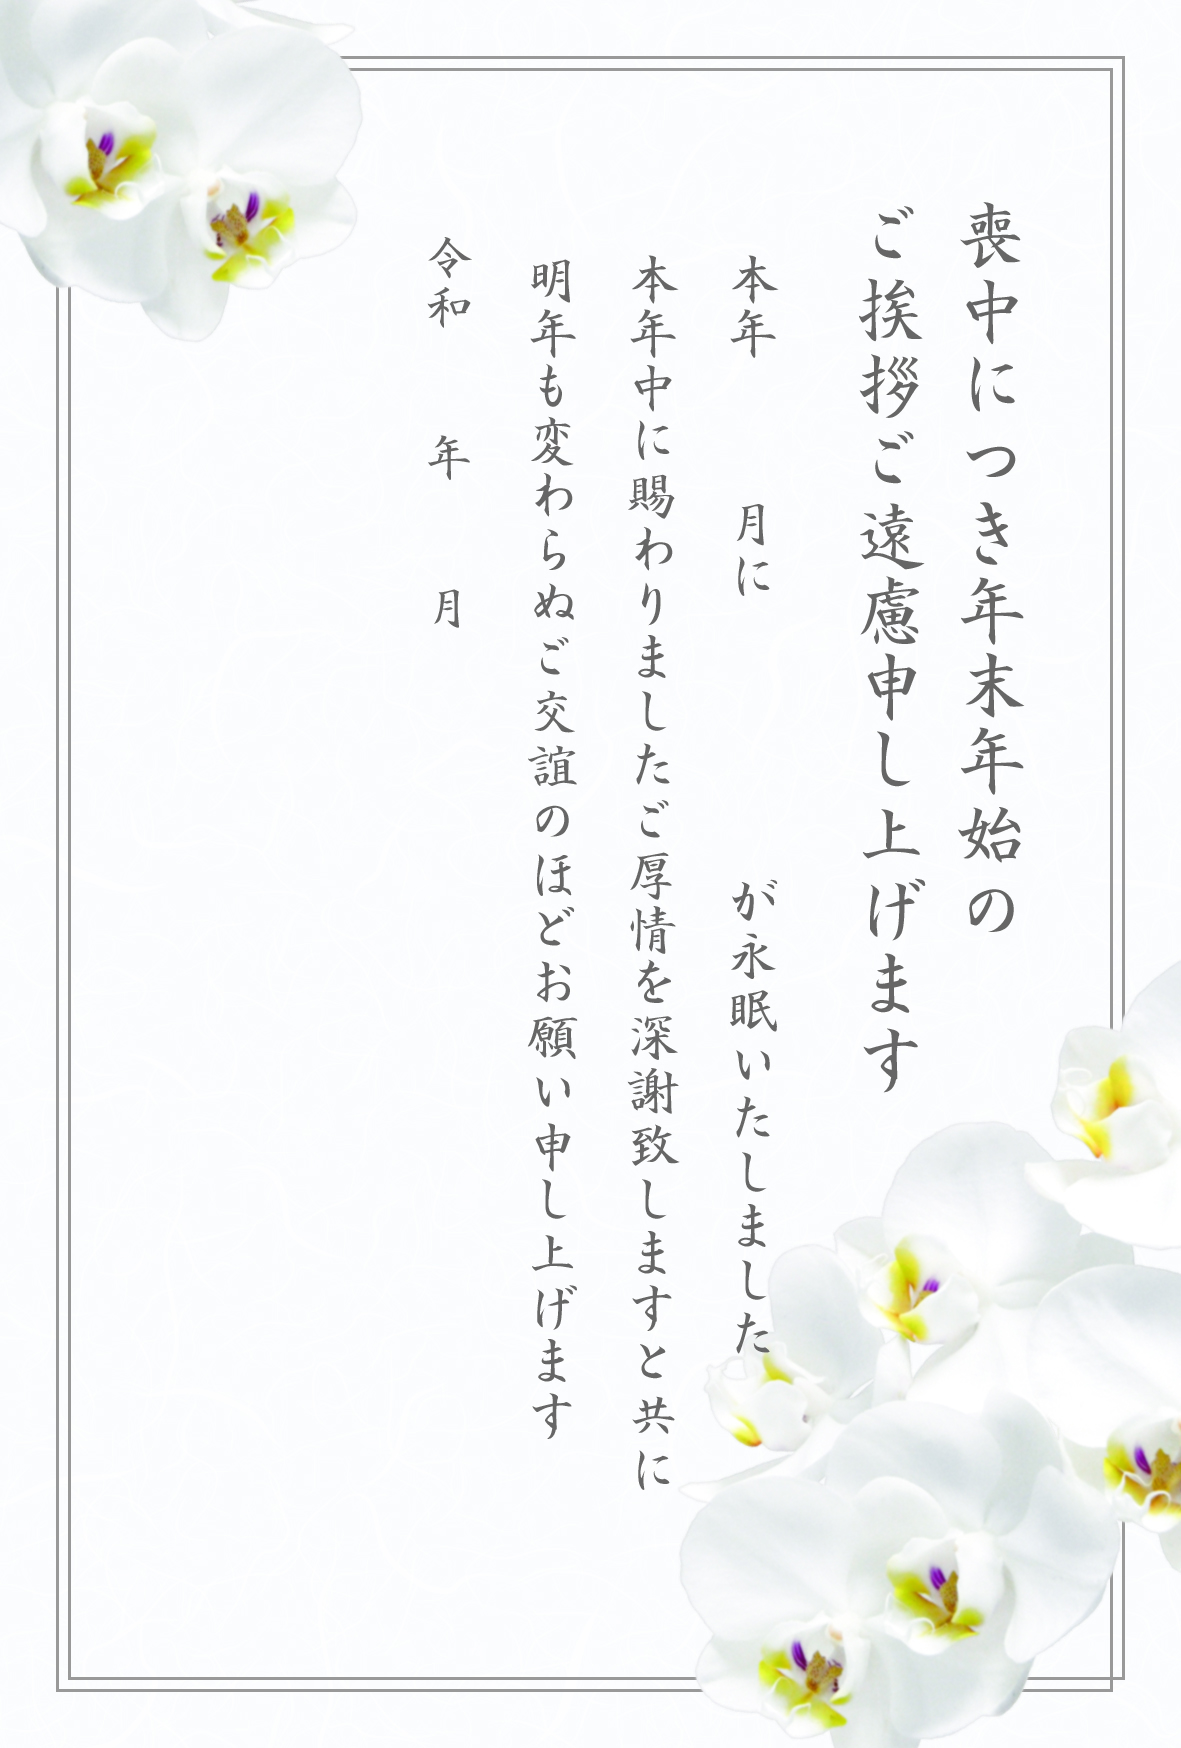 喪中につき年末年始の
ご挨拶ご遠慮申し上げます
本年　　月に　　　　　が永眠いたしました
本年中に賜わりましたご厚情を深謝致しますと共に
明年も変わらぬご交誼のほどお願い申し上げます
令和　　年　　月